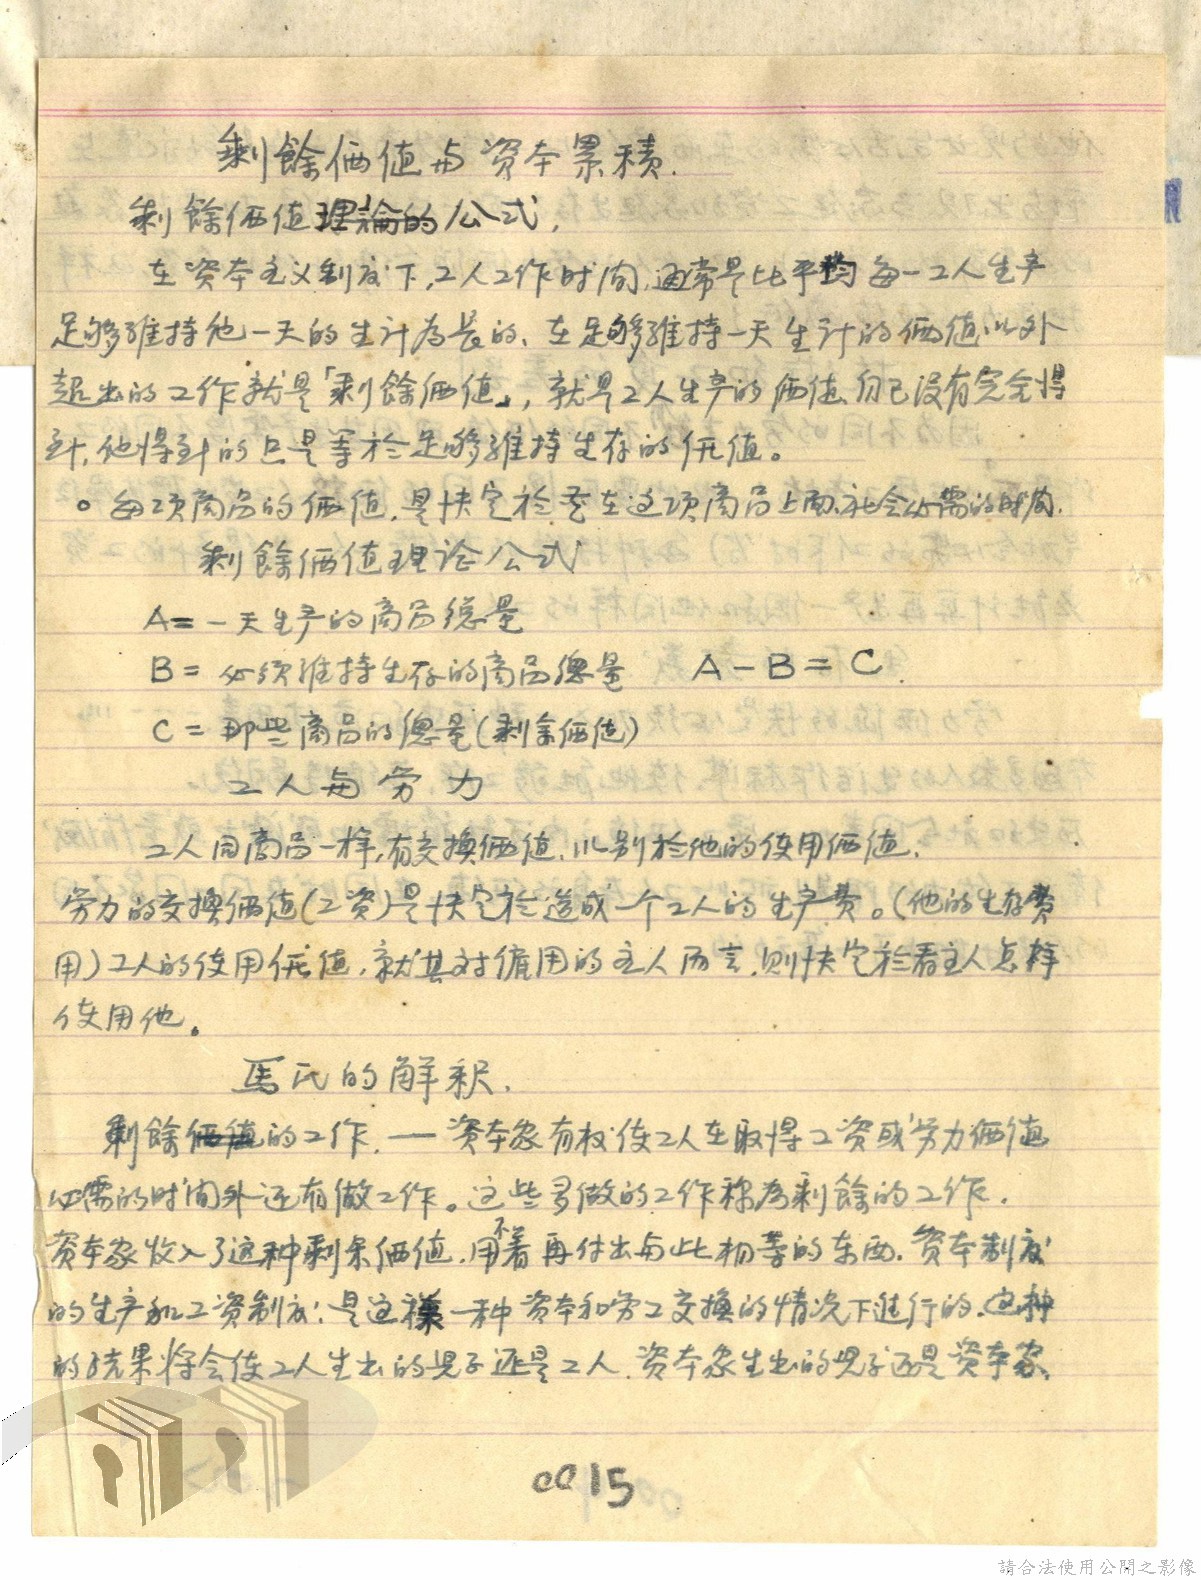 剩餘価值与资本累積.
剩餘価值理論的公式.
在资本主义制度下,工人工作时间,通常是比平均每一工人生产
足够維持他一天的生计为長的、在足够維持一天生计的価值以外
超出的工作就是「剩餘価值」,就是工人生产的価值自己没有完全得
到,他得到的只是等於足够維持生存的価值。
。每项商品的価值,是决定於花在这项商品上面社会必需的时间.
剩餘価值理论公式
A=一天生产的商品總量
B=必须维持生存的商品總量 A-B=C.
C=那些商品的總量(剩余価值)
工人与劳力
工人同商品一样,有交换価值、以别於他的使用価值.
劳力的交换価值(工资)是决定於造成一个工人的生产费。(他的生存费
用)工人的使用価值,就其对僱用的主人而言,则决定於看主人怎样
使用他。
馬氏的解釈.
剩餘価值的工作.—资本家有权使工人在取得工资或劳力価值
必需的时间外还有做工作。这些多做的工作称为剩餘的工作.
资本家收入了这种剩余価值.用不着再付出与此相等的东西.资本制度
的生产和工资制度:是这樣一种资本和劳工交换的情况下进行的.这种
的结果将会使工人生出的兒子还是工人.资本家生出的兒子还是资本家.
0015
請合法使用公開之影像